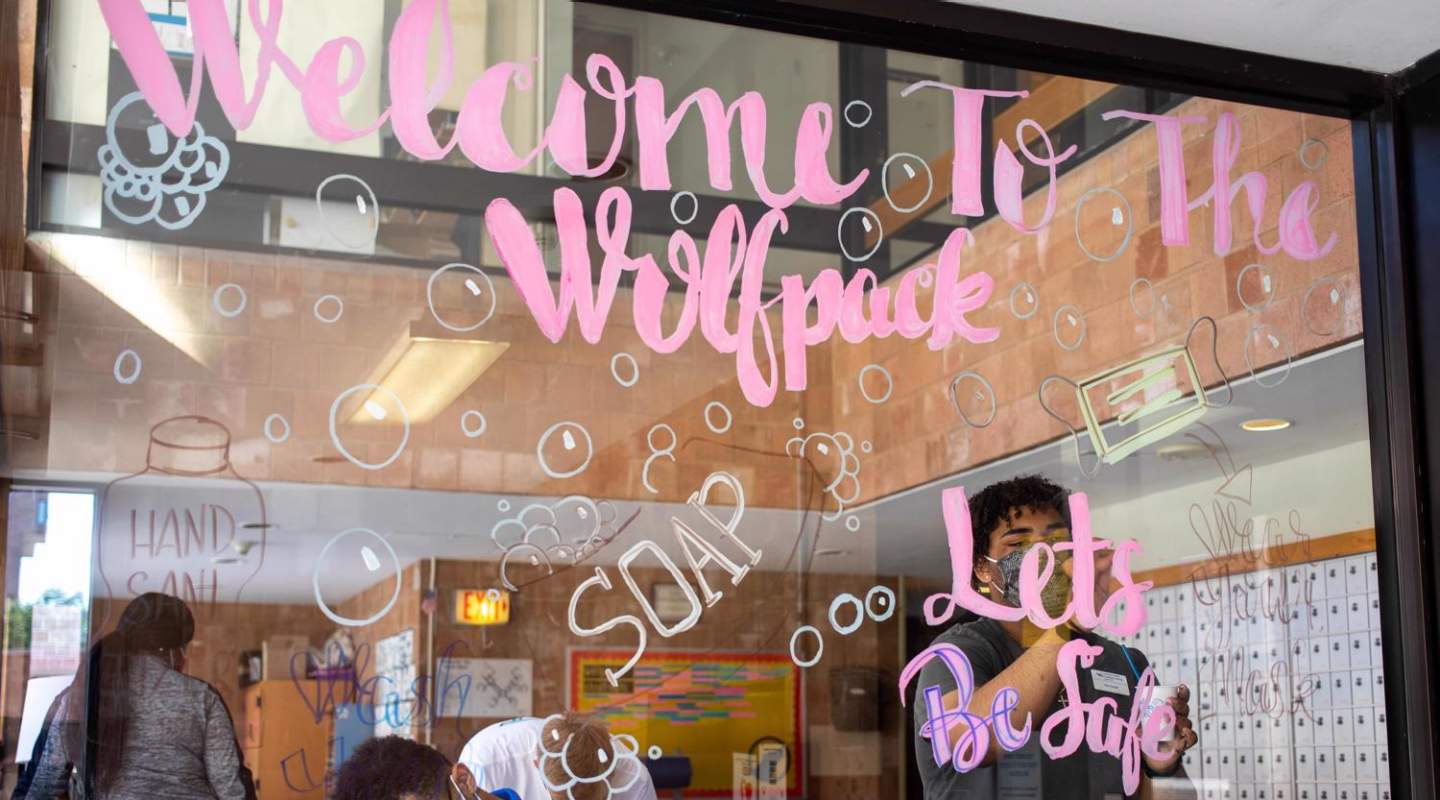 Welcome To The
Wolfpack
HAND
SANI
SOAP
EXIT
Lets
Be Safe
Wear
Your
Mask
Wash